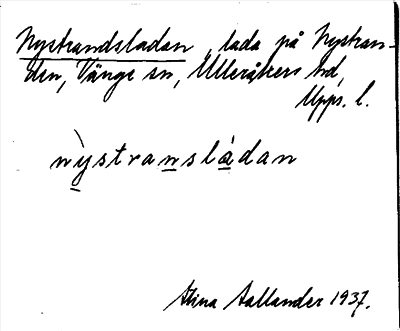 Nystrandsladan, lada på Nystran-
den, Vänge sn, Ulleråkers hd,
Upps. l.
nỳstranslàdan
Stina Aallander 1937.